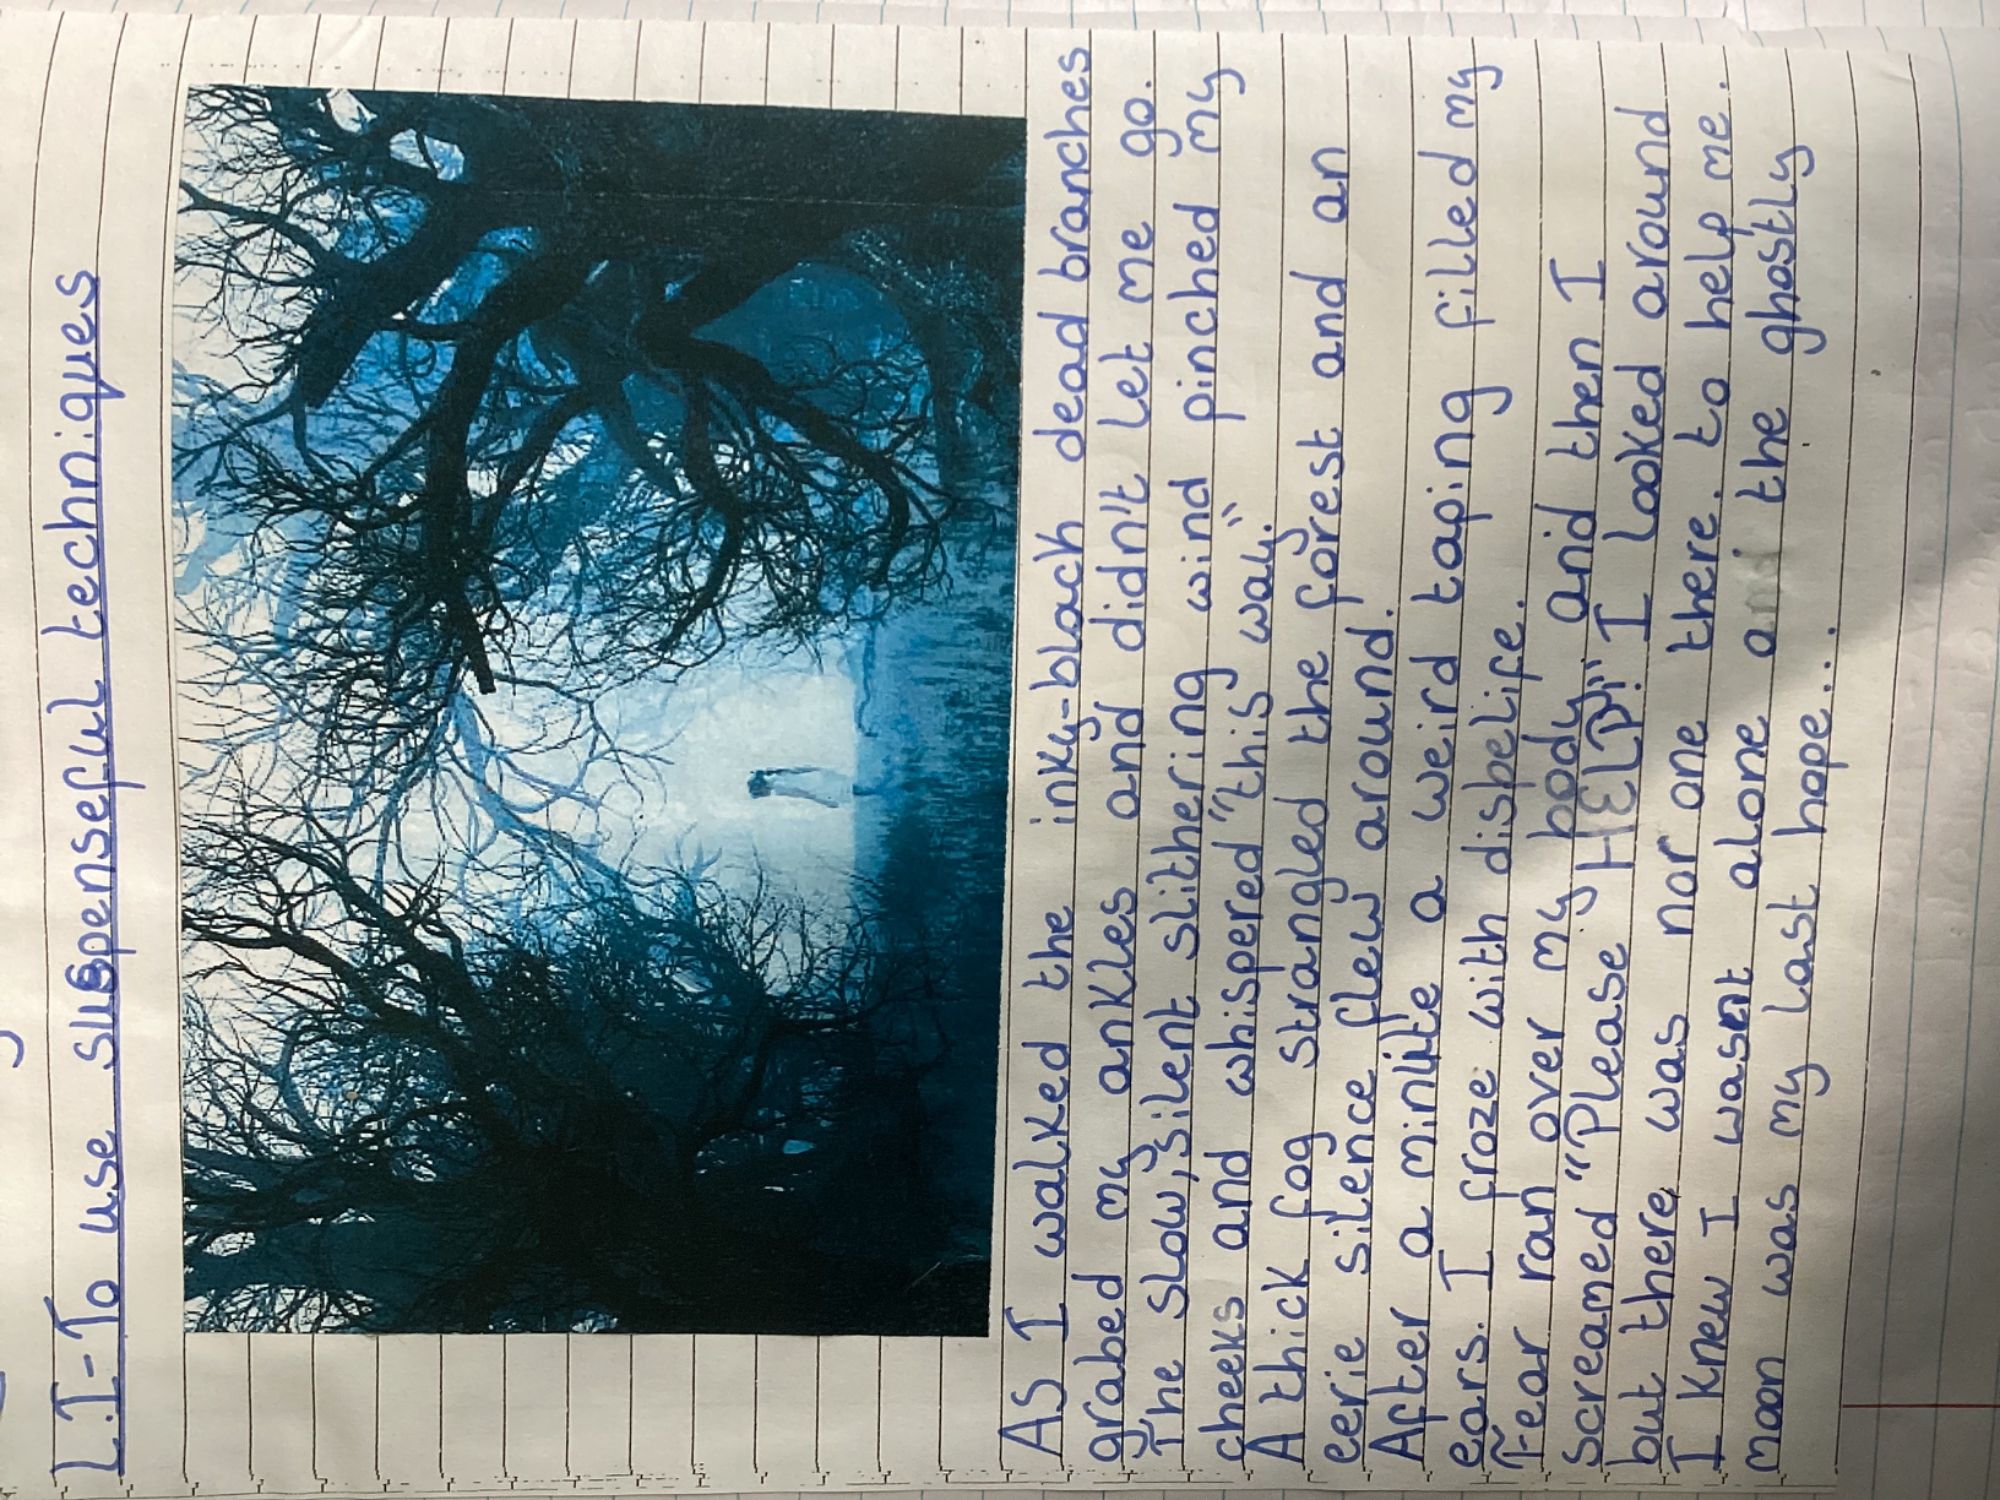 L.I-To use suspenseful techniques
As I walked the inky-blach dead branches
grabed my ankles and didn't let me go.
The slow, silent slithering wind pinched my
cheeks and whispered "this way."
A thick fog strangled the forest and an
eerie silence flew around.
After a minute a weird taping filled my
ears. I froze with disbelife.
Fear ran over my body and then I
screamed "Please HELP!" I looked around
but there was nor one there. to help me.
I knew I wasnt alone the ghostly
moon was my last hope...